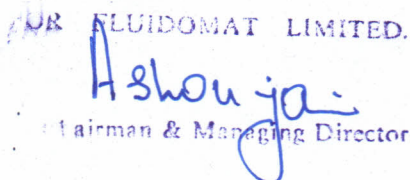 FLUIDOMAT LIMITED.
Ashok Jain
Chairman & Managing Director